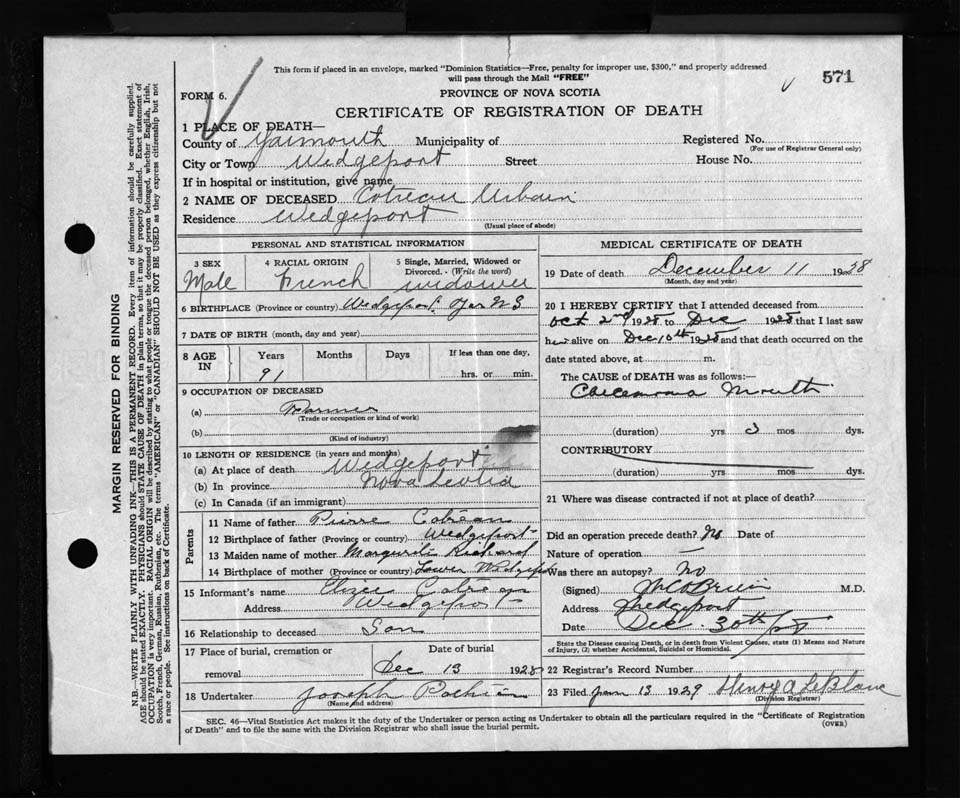 This form if placed in an envelope, marked "Dominion Statistics—Free, penalty for improper use, $300," and properly addressed
will pass through the Mail "FREE"
571
FORM 6.
PROVINCE OF NOVA SCOTIA
CERTIFICATE OF REGISTRATION OF DEATH
1 PLACE OF DEATH—
County of Yarmouth Municipality of Registered No.
(For use of Registrar General only)
City or Town Wedgeport Street House No.
If in hospital or institution, give name
2 NAME OF DECEASED Cotreau Urbain
Residence Wedgeport
(Usual place of abode)
PERSONAL AND STATISTICAL INFORMATION
3 SEX 4 RACIAL ORIGIN 5 Single, Married, Widowed or Divorced. (Write the word)
Male French widower
6 BIRTHPLACE (Province or country) Wedgeport Yar NS
7 DATE OF BIRTH (month, day and year)
8 AGE IN Years Months Days If less than one day,
91 hrs. or min.
9 OCCUPATION OF DECEASED
(a) Farmer
(Trade or occupation or kind of work)
(b)
(Kind of industry)
10 LENGTH OF RESIDENCE (in years and months)
(a) At place of death Wedgeport
(b) In province Nova Scotia
(c) In Canada (if an immigrant)
Parents
11 Name of father Pierre Cotreau
12 Birthplace of father (Province or country) Wedgeport
13 Maiden name of mother Richard
14 Birthplace of mother (Province or country) Lower Wedgeport
15 Informant's name Cotreau
Address Wedgeport
16 Relationship to deceased Son
17 Place of burial, cremation or removal Date of burial
Dec 13 1928
18 Undertaker Joseph
(Name and address)
MEDICAL CERTIFICATE OF DEATH
19 Date of death December 11 1928
(Month, day and year)
20 I HEREBY CERTIFY that I attended deceased from
Oct 2nd 1928 to Dec 1928 that I last saw
her alive on Dec 10th 1928 and that death occurred on the
date stated above, at m.
The CAUSE of DEATH was as follows:—
Carcenoma Mouth
(duration) yrs. 3 mos. dys.
CONTRIBUTORY
(duration) yrs. mos. dys.
21 Where was disease contracted if not at place of death?
Did an operation precede death? No Date of
Nature of operation —
Was there an autopsy? No
(Signed) M.D.
Address Wedgeport
Date Dec. 30th/28
State the Disease causing Death, or in death from Violent Causes, state (1) Means and Nature
of Injury, (2) whether Accidental, Suicidal or Homicidal.
22 Registrar's Record Number
23 Filed Jan 13 1929 Henry A LeBlanc
(Division Registrar)
SEC. 46—Vital Statistics Act makes it the duty of the Undertaker or person acting as Undertaker to obtain all the particulars required in the "Certificate of Registration
of Death" and to file the same with the Division Registrar who shall issue the burial permit.
(OVER)
MARGIN RESERVED FOR BINDING
N.B.—WRITE PLAINLY WITH UNFADING INK—THIS IS A PERMANENT RECORD. Every item of information should be carefully supplied.
AGE should be stated EXACTLY. PHYSICIANS should STATE CAUSE OF DEATH in plain terms, so that it may be properly classified. Exact statement of
OCCUPATION is very important. RACIAL ORIGIN will be described by stating to what people or tongue the deceased person belonged, whether English, Irish,
Scotch, French, German, Russian, Ruthenian, etc. The terms "AMERICAN" or "CANADIAN" SHOULD NOT BE USED as they express citizenship but not
a race or people. See instructions on back of Certificate.